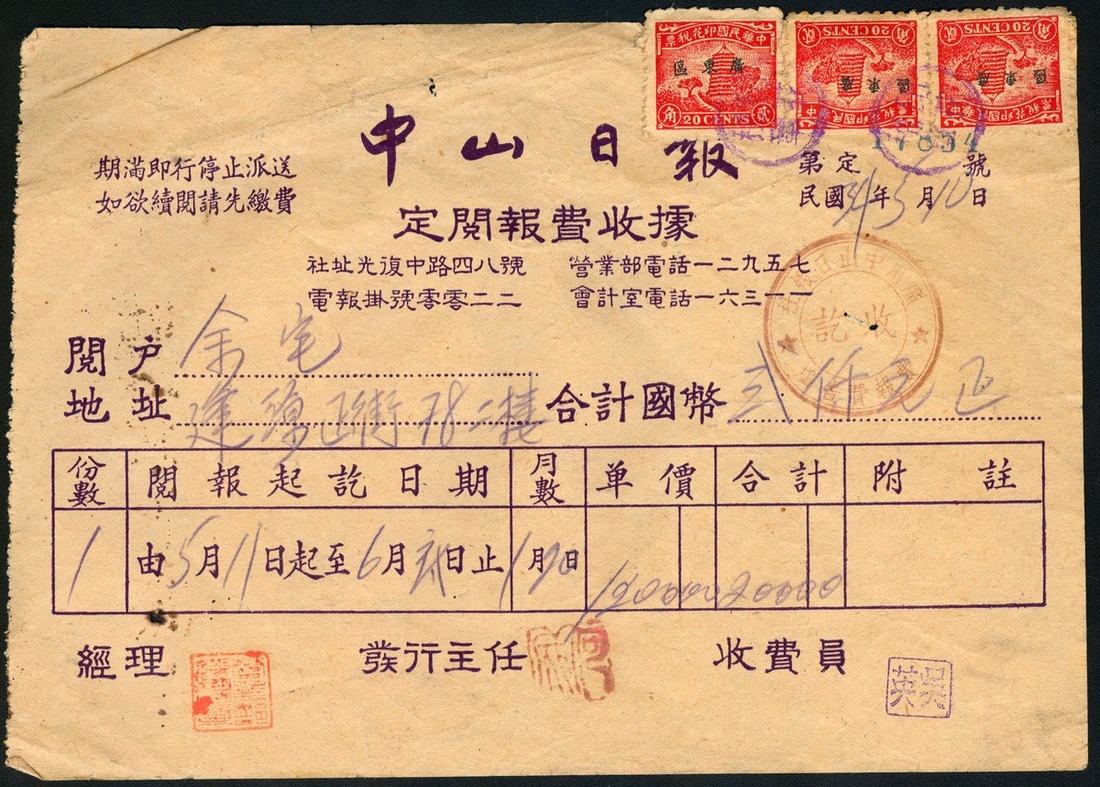 中華民國印花稅票
廣東區
角 20 CENTS 貳
中華民國印花稅票
廣東區
角 20 CENTS 貳
中華民國印花稅票
廣東區
角 20 CENTS 貳
中山日報
期滿即行停止派送
如欲續閱請先繳費
第定17854號
民國 年5月10日
定閱報費收據
社址光復中路四八號 營業部電話一二九五七
電報掛號零零二二 會計室電話一六三一一
收訖
閱户 余宅
地址 正街78二樓 合計國幣 弍仟元正
份數 閱報起訖日期 月數 单價 合計 附註
1 由5月11日起至6月 日止 1月20日
經理 發行主任 收費員
吳英